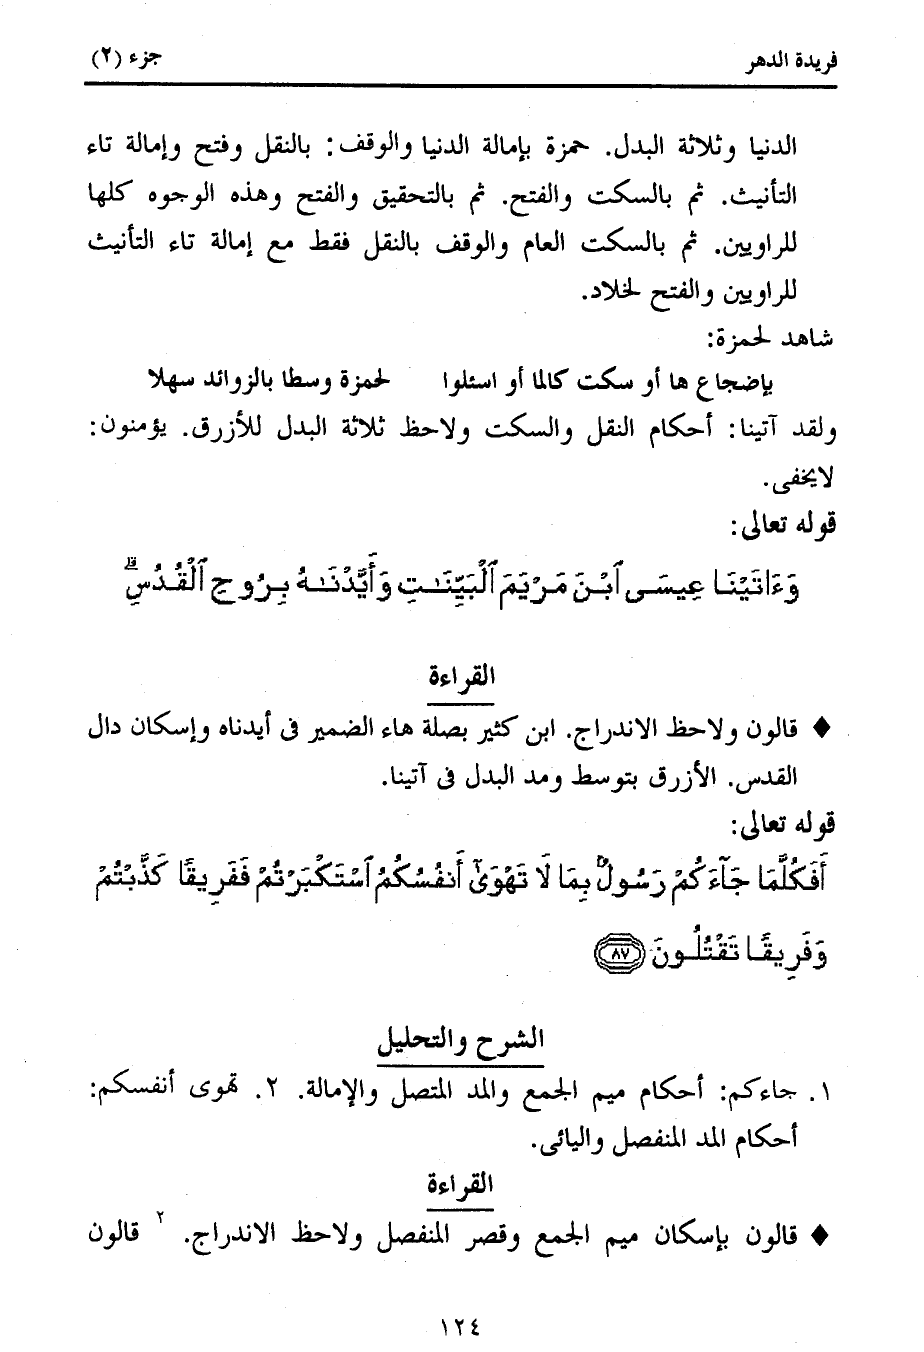 فريدة الدهر
جزء (٢)
الدنيا وثلاثة البدل. حمزة بإمالة الدنيا والوقف: بالنقل وفتح وإمالة تاء
التأنيث. ثم بالسكت والفتح. ثم بالتحقيق والفتح وهذه الوجوه كلها
للراويين. ثم بالسكت العام والوقف بالنقل فقط مع إمالة تاء التأنيث
للراويين والفتح لخلاد.
شاهد لحمزة:
بإضجاع ها أو سكت كالما أو اسئلوا لحمزة وسطا بالزوائد سهلا
ولقد آتينا: أحكام النقل والسكت ولاحظ ثلاثة البدل للأزرق. يؤمنون:
لايخفى.
قوله تعالى:
وَءَاتَيْنَا عِيسَى ٱبْنَ مَرْيَمَ ٱلْبَيِّنَـٰتِ وَأَيَّدْنَـٰهُ بِرُوحِ ٱلْقُدُسِ ۗ
القراءة
♦ قالون ولاحظ الاندراج. ابن كثير بصلة هاء الضمير فى أيدناه وإسكان دال
القدس. الأزرق بتوسط ومد البدل فى آتينا.
قوله تعالى:
أَفَكُلَّمَا جَآءَكُمْ رَسُولٌۢ بِمَا لَا تَهْوَىٰٓ أَنفُسُكُمُ ٱسْتَكْبَرْتُمْ فَفَرِيقًا كَذَّبْتُمْ
وَفَرِيقًا تَقْتُلُونَ ٨٧
الشرح والتحليل
١. جاءكم: أحكام ميم الجمع والمد المتصل والإمالة. ٢. تهوى أنفسكم:
أحكام المد المنفصل واليائى.
القراءة
♦ قالون بإسكان ميم الجمع وقصر المنفصل ولاحظ الاندراج. ٢ قالون
١٢٤